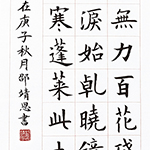 無力百花殘
淚始乾曉鏡
寒蓬萊此
在庚子秋月邵靖恩書